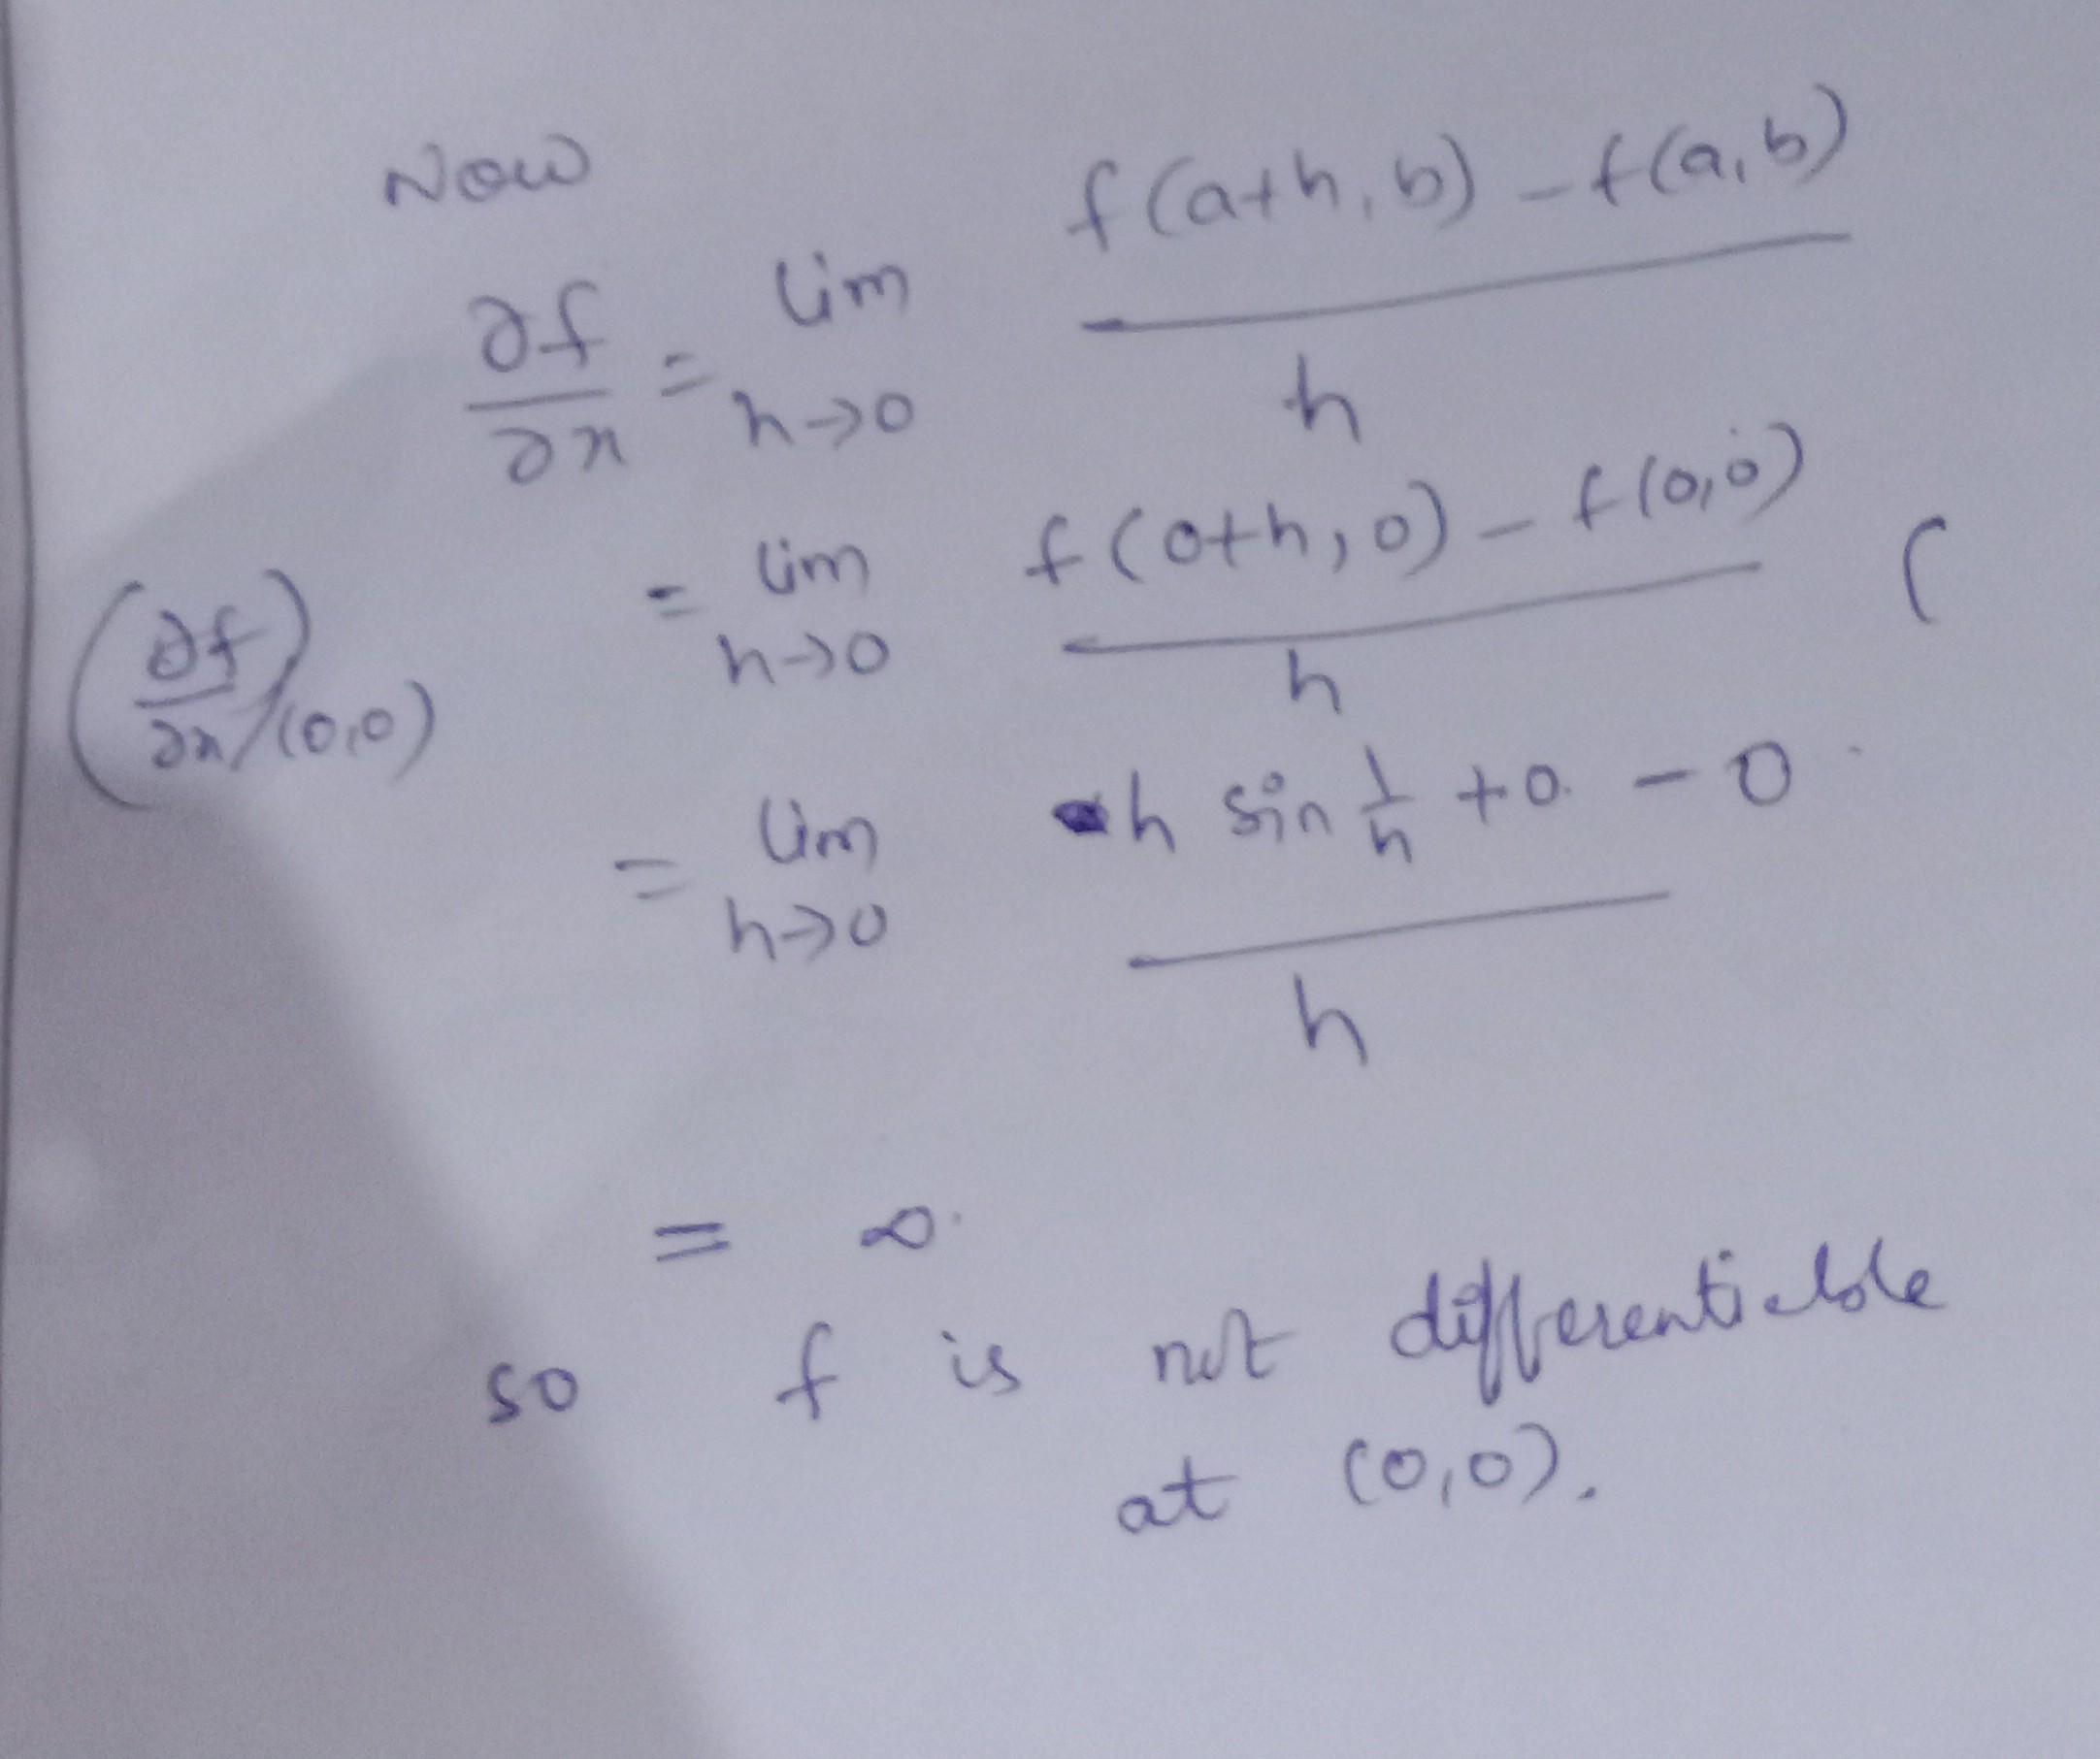 Now
∂f/∂x = lim h→0 (f(a+h, b) - f(a, b))/h
(∂f/∂x)(0,0) = lim h→0 (f(0+h, 0) - f(0,0))/h (
= lim h→0 (h sin 1/h + 0. - 0)/h
= ∞.
so f is not differentiable
at (0,0).